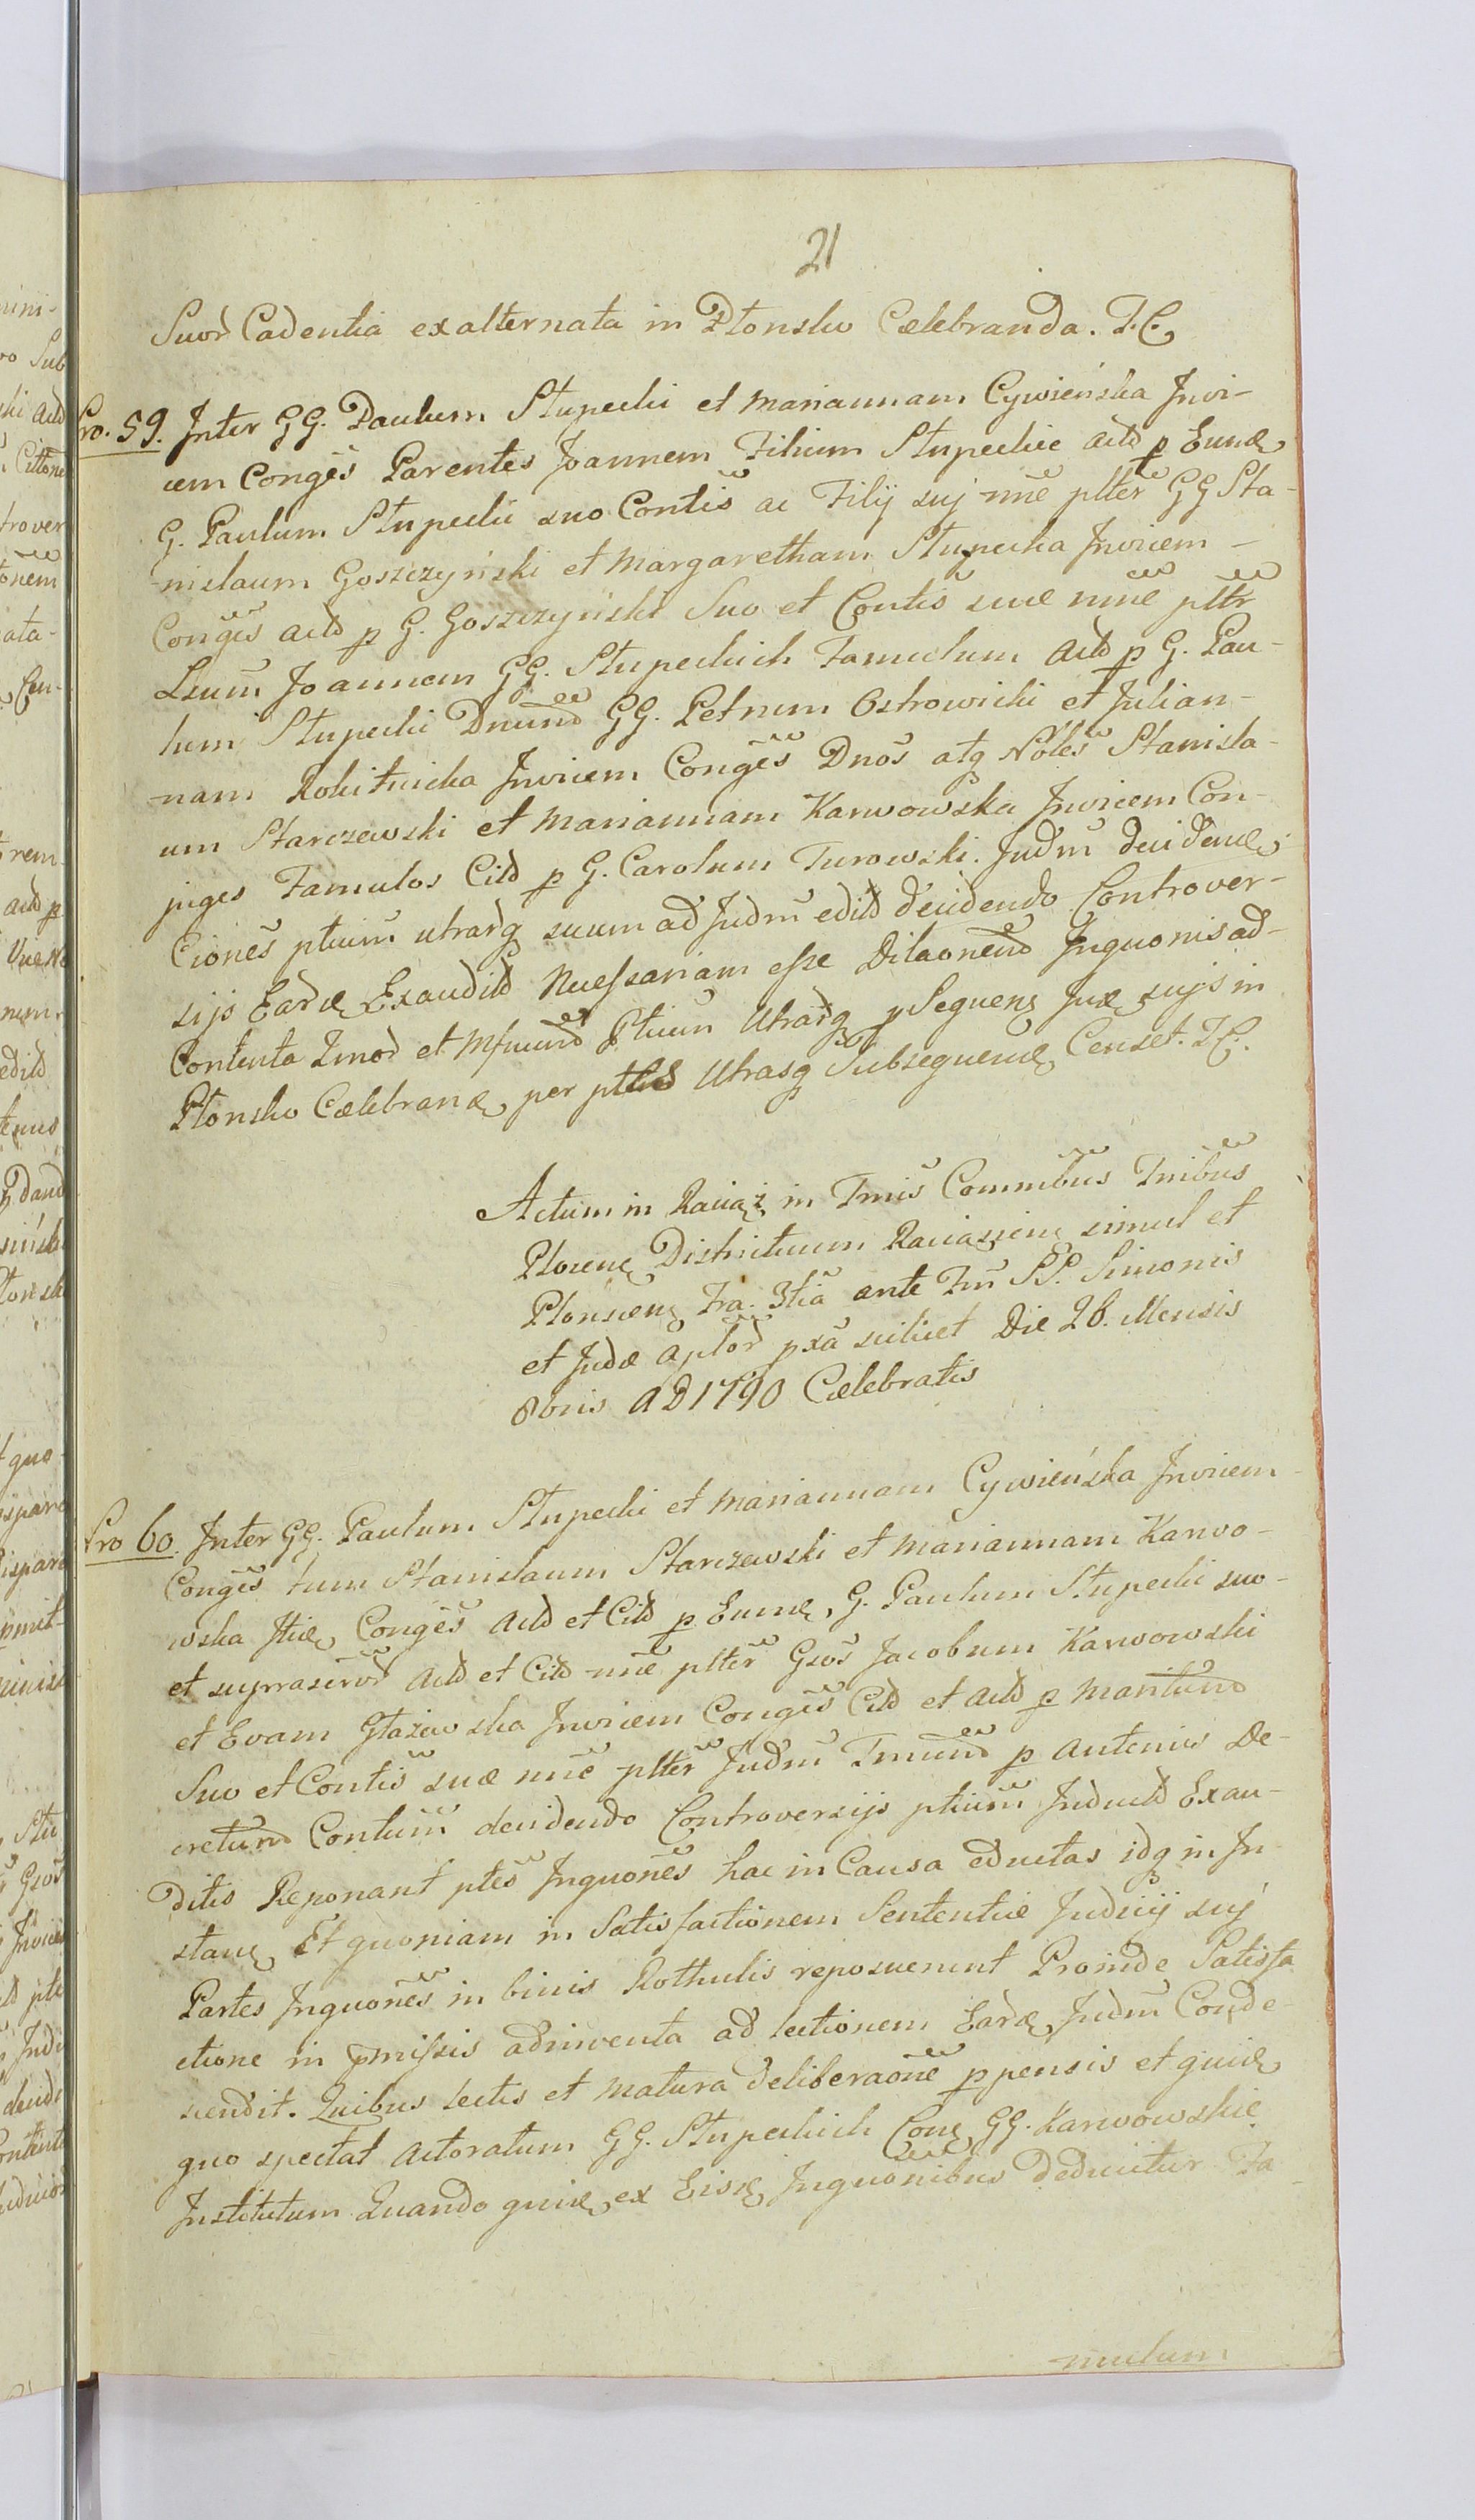 21
Suor Cadentia exalternata in Płonsko Cælebranda. T. C.
Pro. 59. Inter GG. Paulum Słupecki et Mariannam Cywieńska Invi-
cem Conges Parentes Joannem Filium Słupeckie Actd p Eund
G. Paulum Słupecki suo Contis ac Filij sui nne plter GG Sta-
nislaum Goszczyński et Margaretham Słupecka Invicem -
Conges Actd p G. Goszczyński Suo et Contis suæ nne pltr
Lsum Joannem GG. Słupeckich Famulum Actd p G. Pau-
lum Słupecki Dnumd GG. Petrum Ostrowicki et Julian-
nam Rokitnicka Invicem Conges Dnos atq Nobles Stanisla-
um Starczewski et Mariannam Karwowska Invicem Con-
juges Famulos Citd p G. Carolum Turowski. Judm decidend
Ciones ptium utrarq suum ad Judm editd decidendo Controver-
sijs Eard Exauditd Necessariam esse Dilaonemd Inquonis ad-
Contenta Imod et Mfnumd Ptium Utrarq p Sequenq Jud sujs in
Płonsko Cælebrand per ptesd Utrasq Subsequend Censet. T. C.
Actum in Raciąż in Tmis Commibus Tnibus
Plocen Districtuum Raciążien simul et
Płonscen Fra. 3tia ante Fm SS. Simonis
et Judæ Aplor pxa scilicet Die 26. Mensis
8bris AD 1790 Cælebratis
Pro 60. Inter GG. Paulum Słupecki et Mariannam Cywieńska Invicem
Conges tum Stanislaum Starczewski et Mariannam Karwo-
wska Itid Conges Actd et Citd p Eund, G. Paulum Słupecki suo
et suprascrord Actd et Citd nne plter Gsos Jacobum Karwowski
et Evam Głażewska Invicem Conges Citd et Actd p Maritumd
Suo et Contis suæ nne plter Judm Tmumd p Antenus De-
cretumd Contum decidendo Controversijs ptium Inductd Exau-
ditis Reponant ptes Inquones hac in Causa eductas idq in In
stand Et quoniam in Satisfactionem Sententiæ Judicij suj
Partes Inquones in binis Rothulis reposuerunt Proinde Satisfa
ctione in pmissis adinventa ad lectionem Eard Judm Conde-
scendit. Quibus lectis et matura deliberaone ppensis et quid
quo spectat Actoratum GG. Słupeckich Cond GG. Karwowskie
Institutum Quando quid ex Eisd Inquonibus Deducitur Fa-
mulum